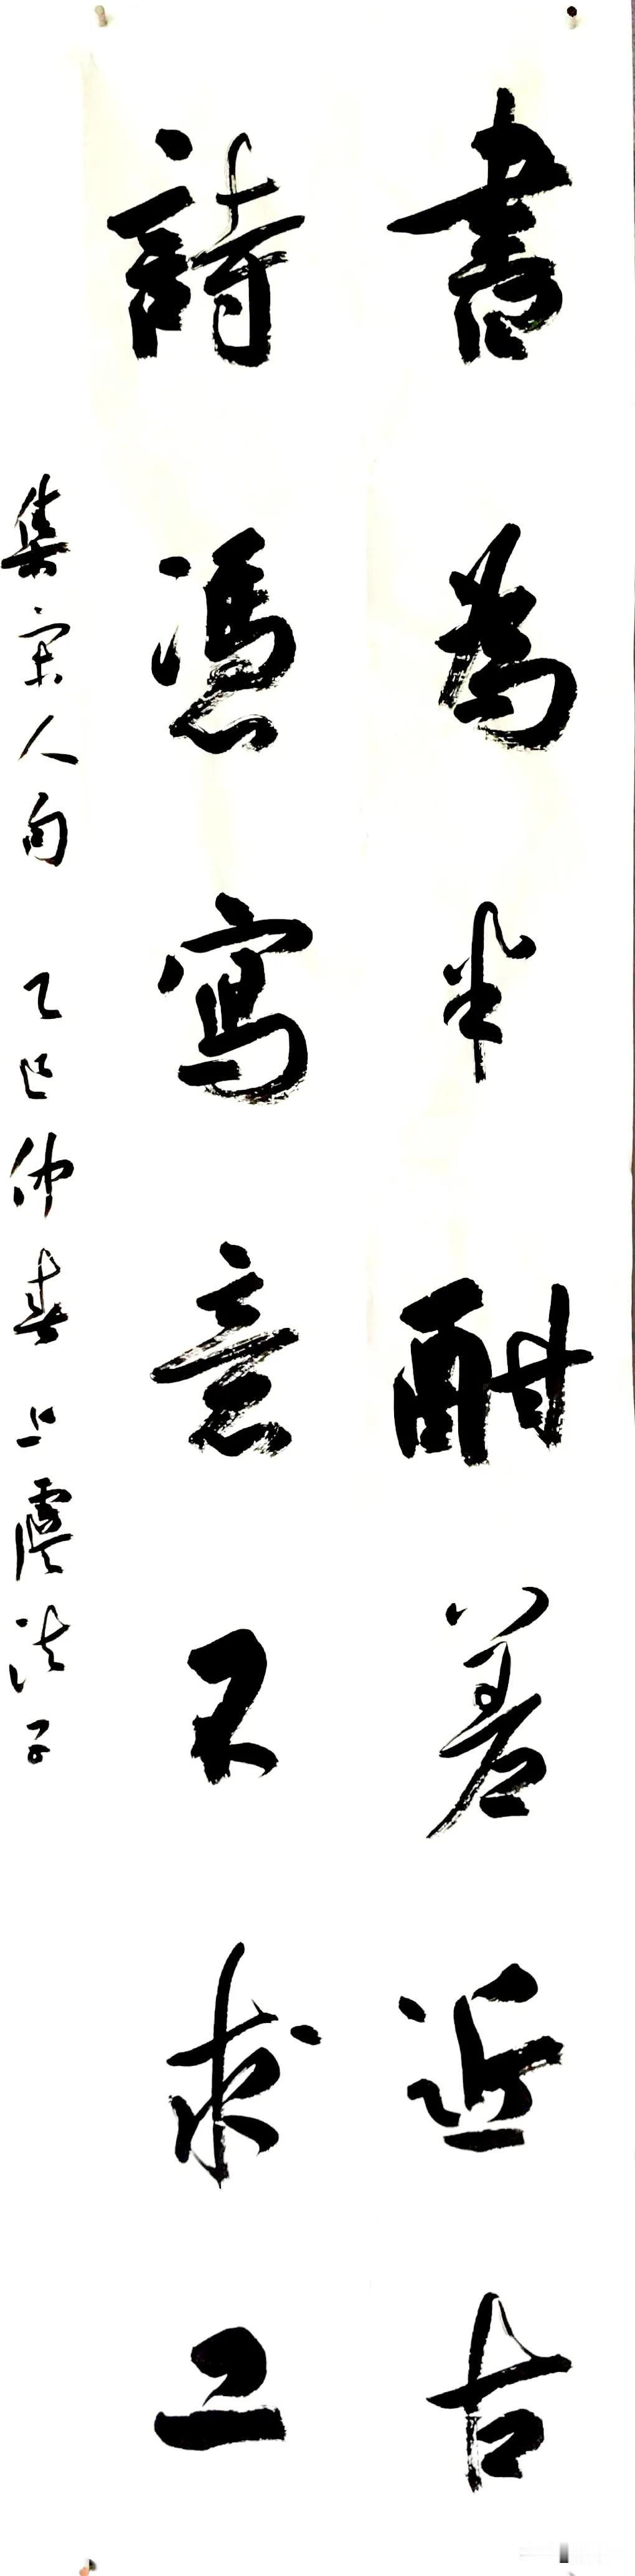 書為半酣差近古
詩憑寫意不求工
集宋人句 乙巳仲春 上虞法子